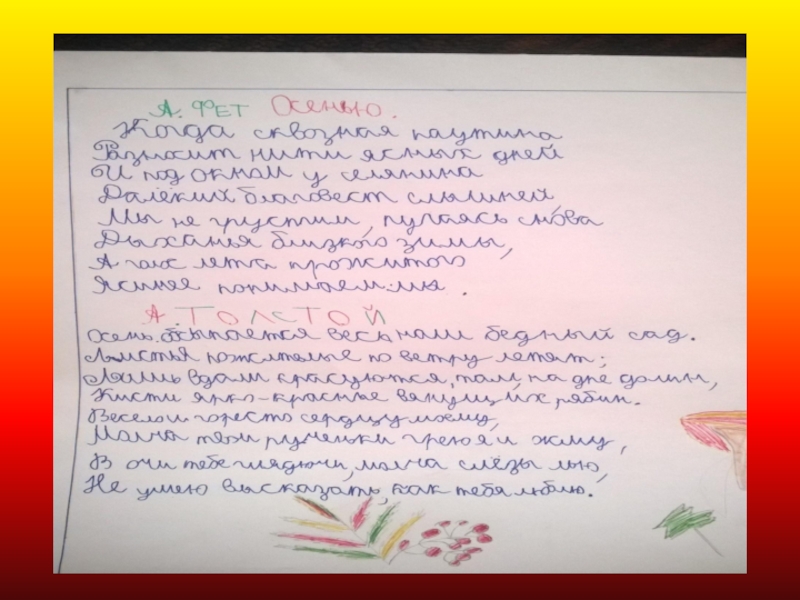 А. ФЕТ Осенью.
Когда сквозная паутина
Разносит нити ясных дней
И под окном у селянина
Далёкий благовест слышней,
Мы не грустим, пугаясь снова
Дыханья близкого зимы,
А голос лета прожитого
Яснее понимаем мы.
А. ТОЛСТОЙ
Осень. Обсыпается весь наш бедный сад.
Листья пожелтелые по ветру летят;
Лишь вдали красуются, там, на дне долин,
Кисти ярко-красные вянущих рябин.
Весело и горестно сердцу моему,
Молча твои рученьки грею я и жму,
В очи тебе глядючи, молча слёзы лью,
Не умею высказать, как тебя люблю.